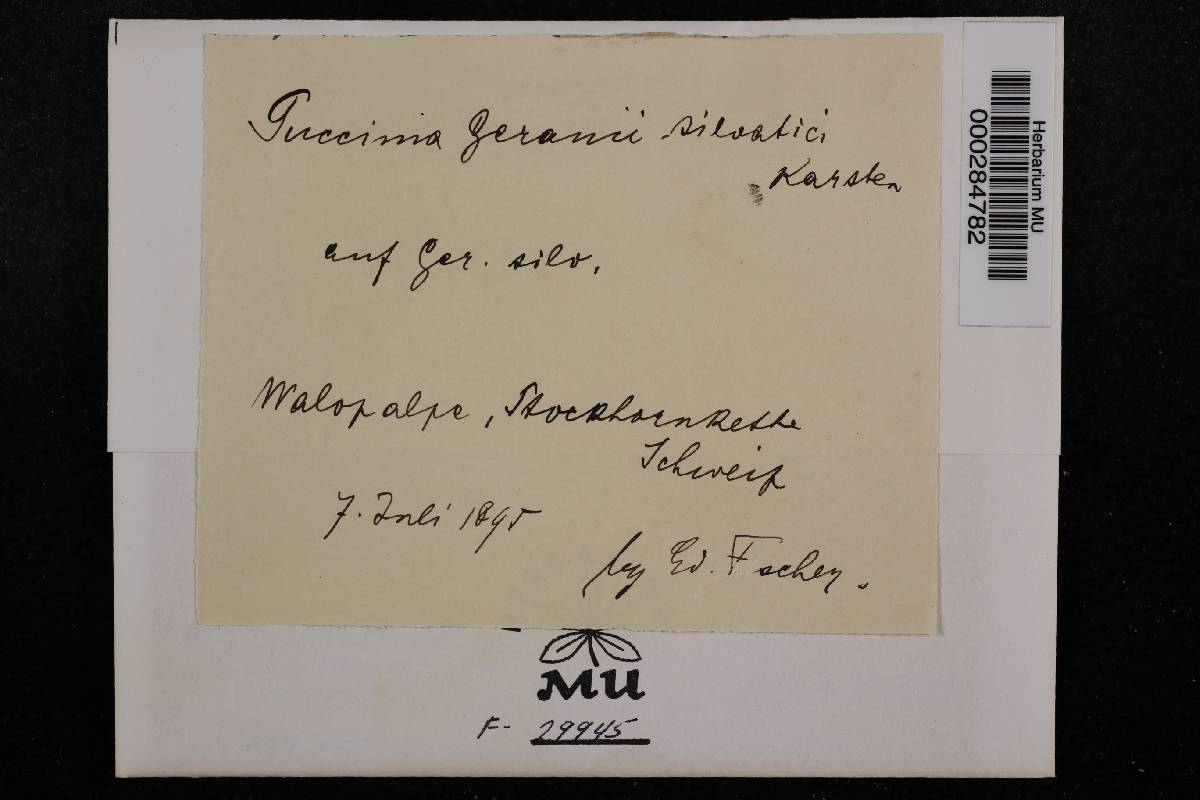 Puccinia Geranii silvatici
Karsten
auf Ger. silv.
Walopalpe, Stockhornkette
Schweiz
7. Juli 1895
leg Ed. Fischer.
MU
F- 29945
Herbarium MU
000284782